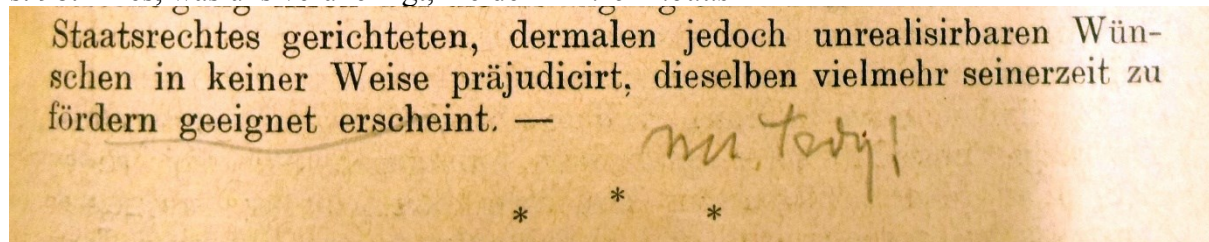 Staatsrechtes gerichteten, dermalen jedoch unrealisirbaren Wün-
schen in keiner Weise präjudicirt, dieselben vielmehr seinerzeit zu
fördern geeignet erscheint. —
tedy!
*
* *